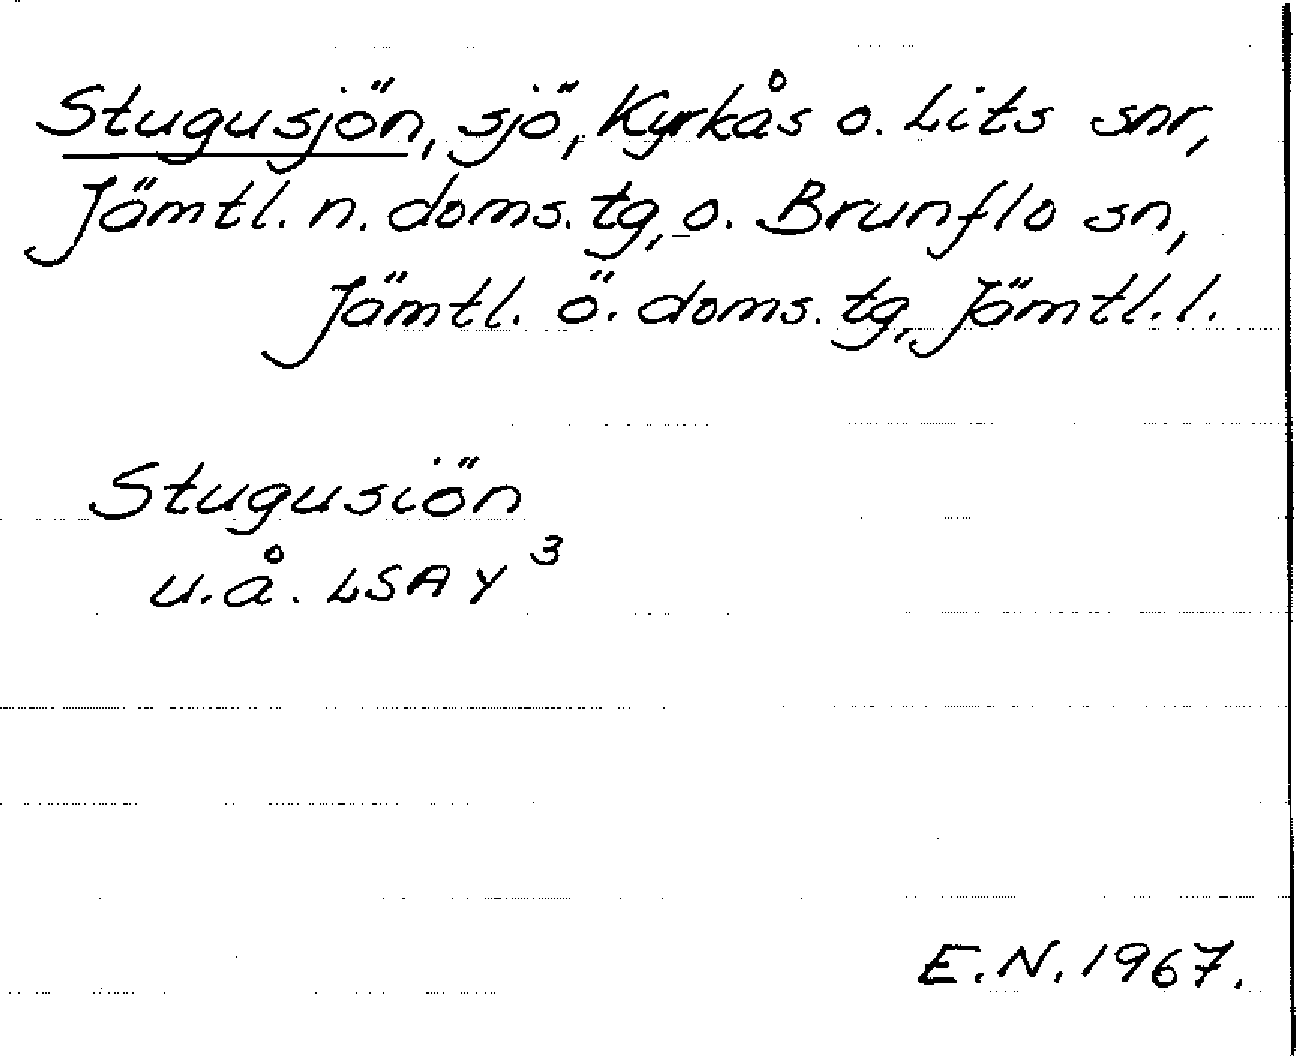 Stugusjön, sjö, Kyrkås o. Lits snr,
Jämtl. n. doms. tg, o. Brunflo sn,
Jämtl. ö. doms. tg, Jämtl. l.
Stugusiön
u.å. LSA Y³
E.N. 1967.